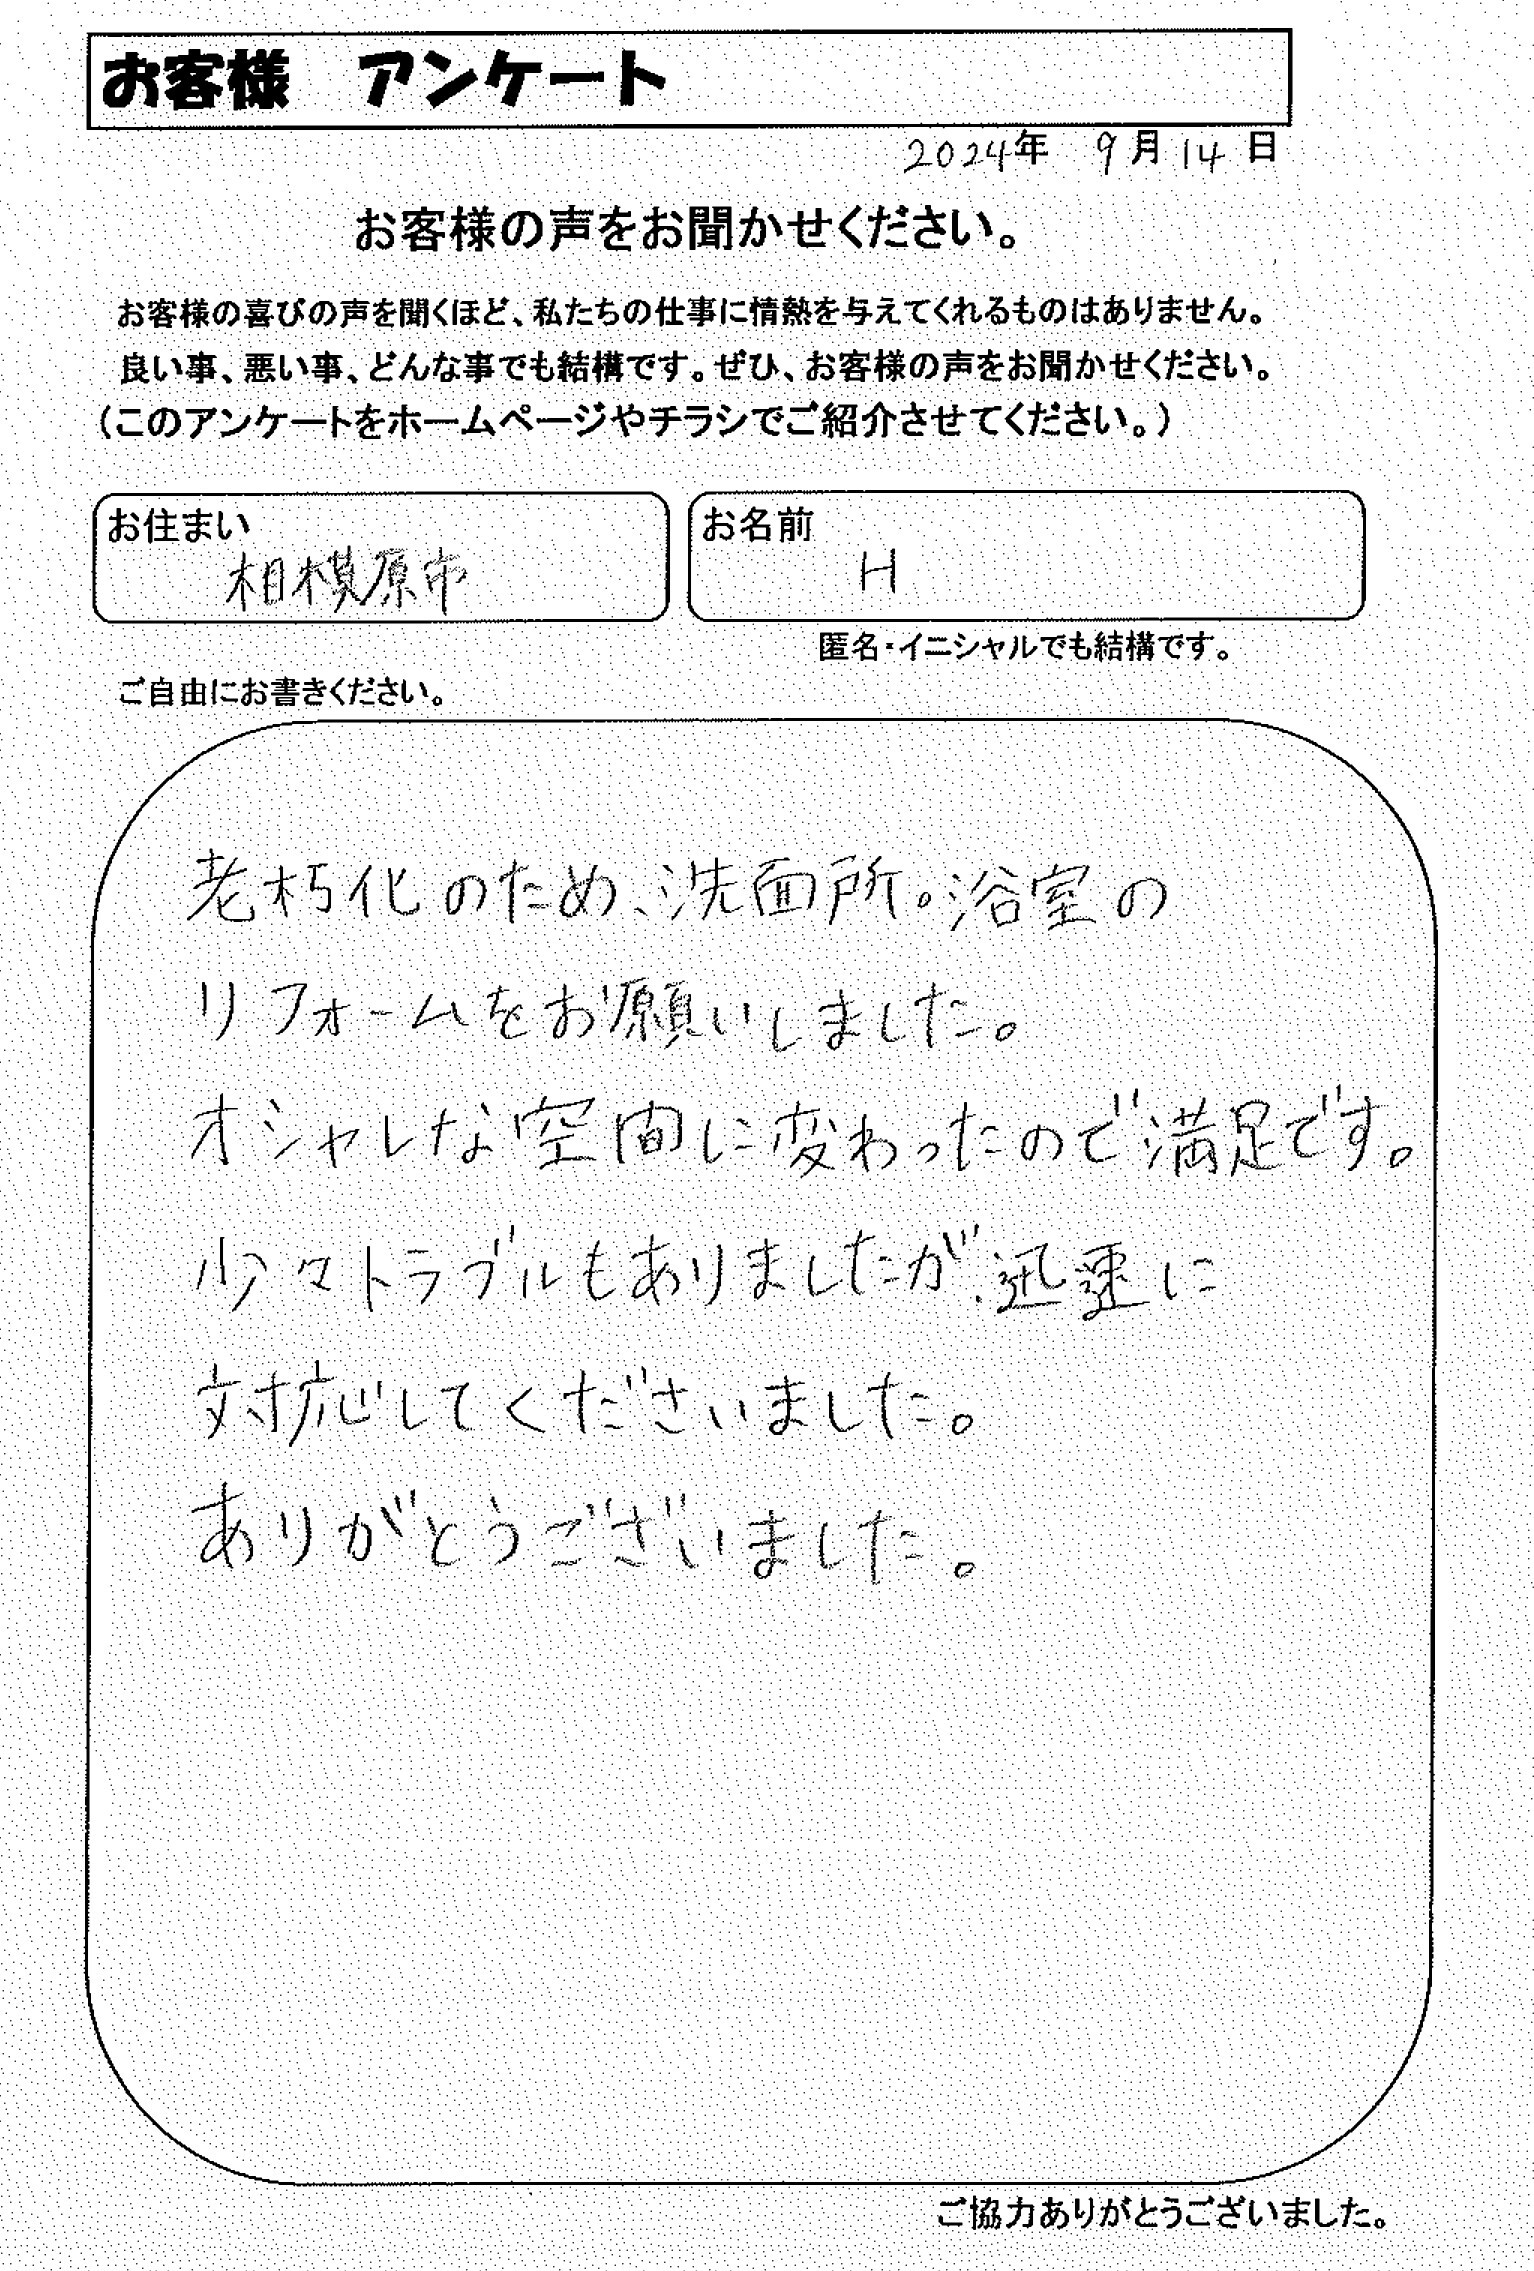 お客様　アンケート
2024年　9月14日
お客様の声をお聞かせください。
お客様の喜びの声を聞くほど、私たちの仕事に情熱を与えてくれるものはありません。
良い事、悪い事、どんな事でも結構です。ぜひ、お客様の声をお聞かせください。
（このアンケートをホームページやチラシでご紹介させてください。）
お住まい
相模原市
お名前
H
匿名・イニシャルでも結構です。
ご自由にお書きください。
老朽化のため、洗面所。浴室の
リフォームをお願いしました。
オシャレな空間に変わったので満足です。
少々トラブルもありましたが、迅速に
対応してくださいました。
ありがとうございました。
ご協力ありがとうございました。